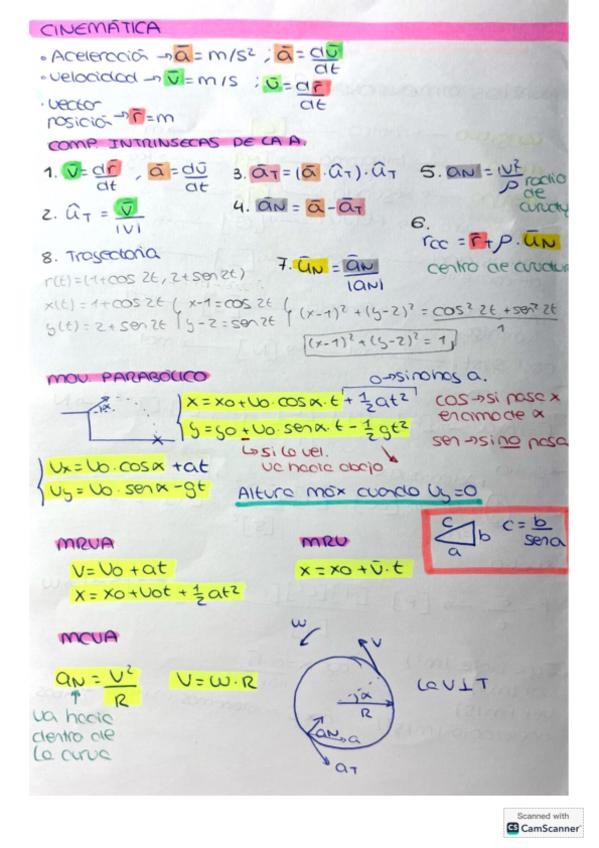 CINEMÁTICA
• Aceleración → ā = m/s² ; ā = dū/dt
• velocidad → v̄ = m/s ; ū = dr̄/dt
• vector
posición → r̄ = m
COMP. INTRINSECAS DE LA A.
1. v̄ = dr̄/dt , ā = dū/dt
2. ûT = v̄/|v|
3. āT = (ā · ûT) · ûT
4. āN = ā - āT
5. aN = |v|²/ρ radio de curvatu
6. rcc = r̄ + ρ · ūN
centro de curvatura
7. ūN = āN/|aN|
8. Trayectoria
r(t) = (1+cos 2t, 2+sen 2t)
x(t) = 1+cos 2t { x-1 = cos 2t { (x-1)² + (y-2)² = cos² 2t + sen² 2t
y(t) = 2+sen 2t { y-2 = sen 2t 1
(x-1)² + (y-2)² = 1
MOV. PARABÓLICO
0 → si no hay a.
x = x0 + v0 · cos α · t + 1/2 at²
y = y0 + v0 · sen α · t - 1/2 gt²
↳ si la vel.
va hacia abajo
cos → si pasa x
el ramo de α
sen → si no pasa
α
x
Ux = U0 · cos α + at
Uy = U0 · sen α - gt
Altura máx cuando Uy = 0
c
b
a
c = b/sen a
MRUA
V = V0 + at
x = x0 + v0t + 1/2 at²
MRU
x = x0 + v̄ · t
MCUA
aN = V²/R
V = ω · R
va hacia
dentro de
la curva
ω
V
α
R
aN
a
aT
La V ⊥ T
Scanned with
CS CamScanner